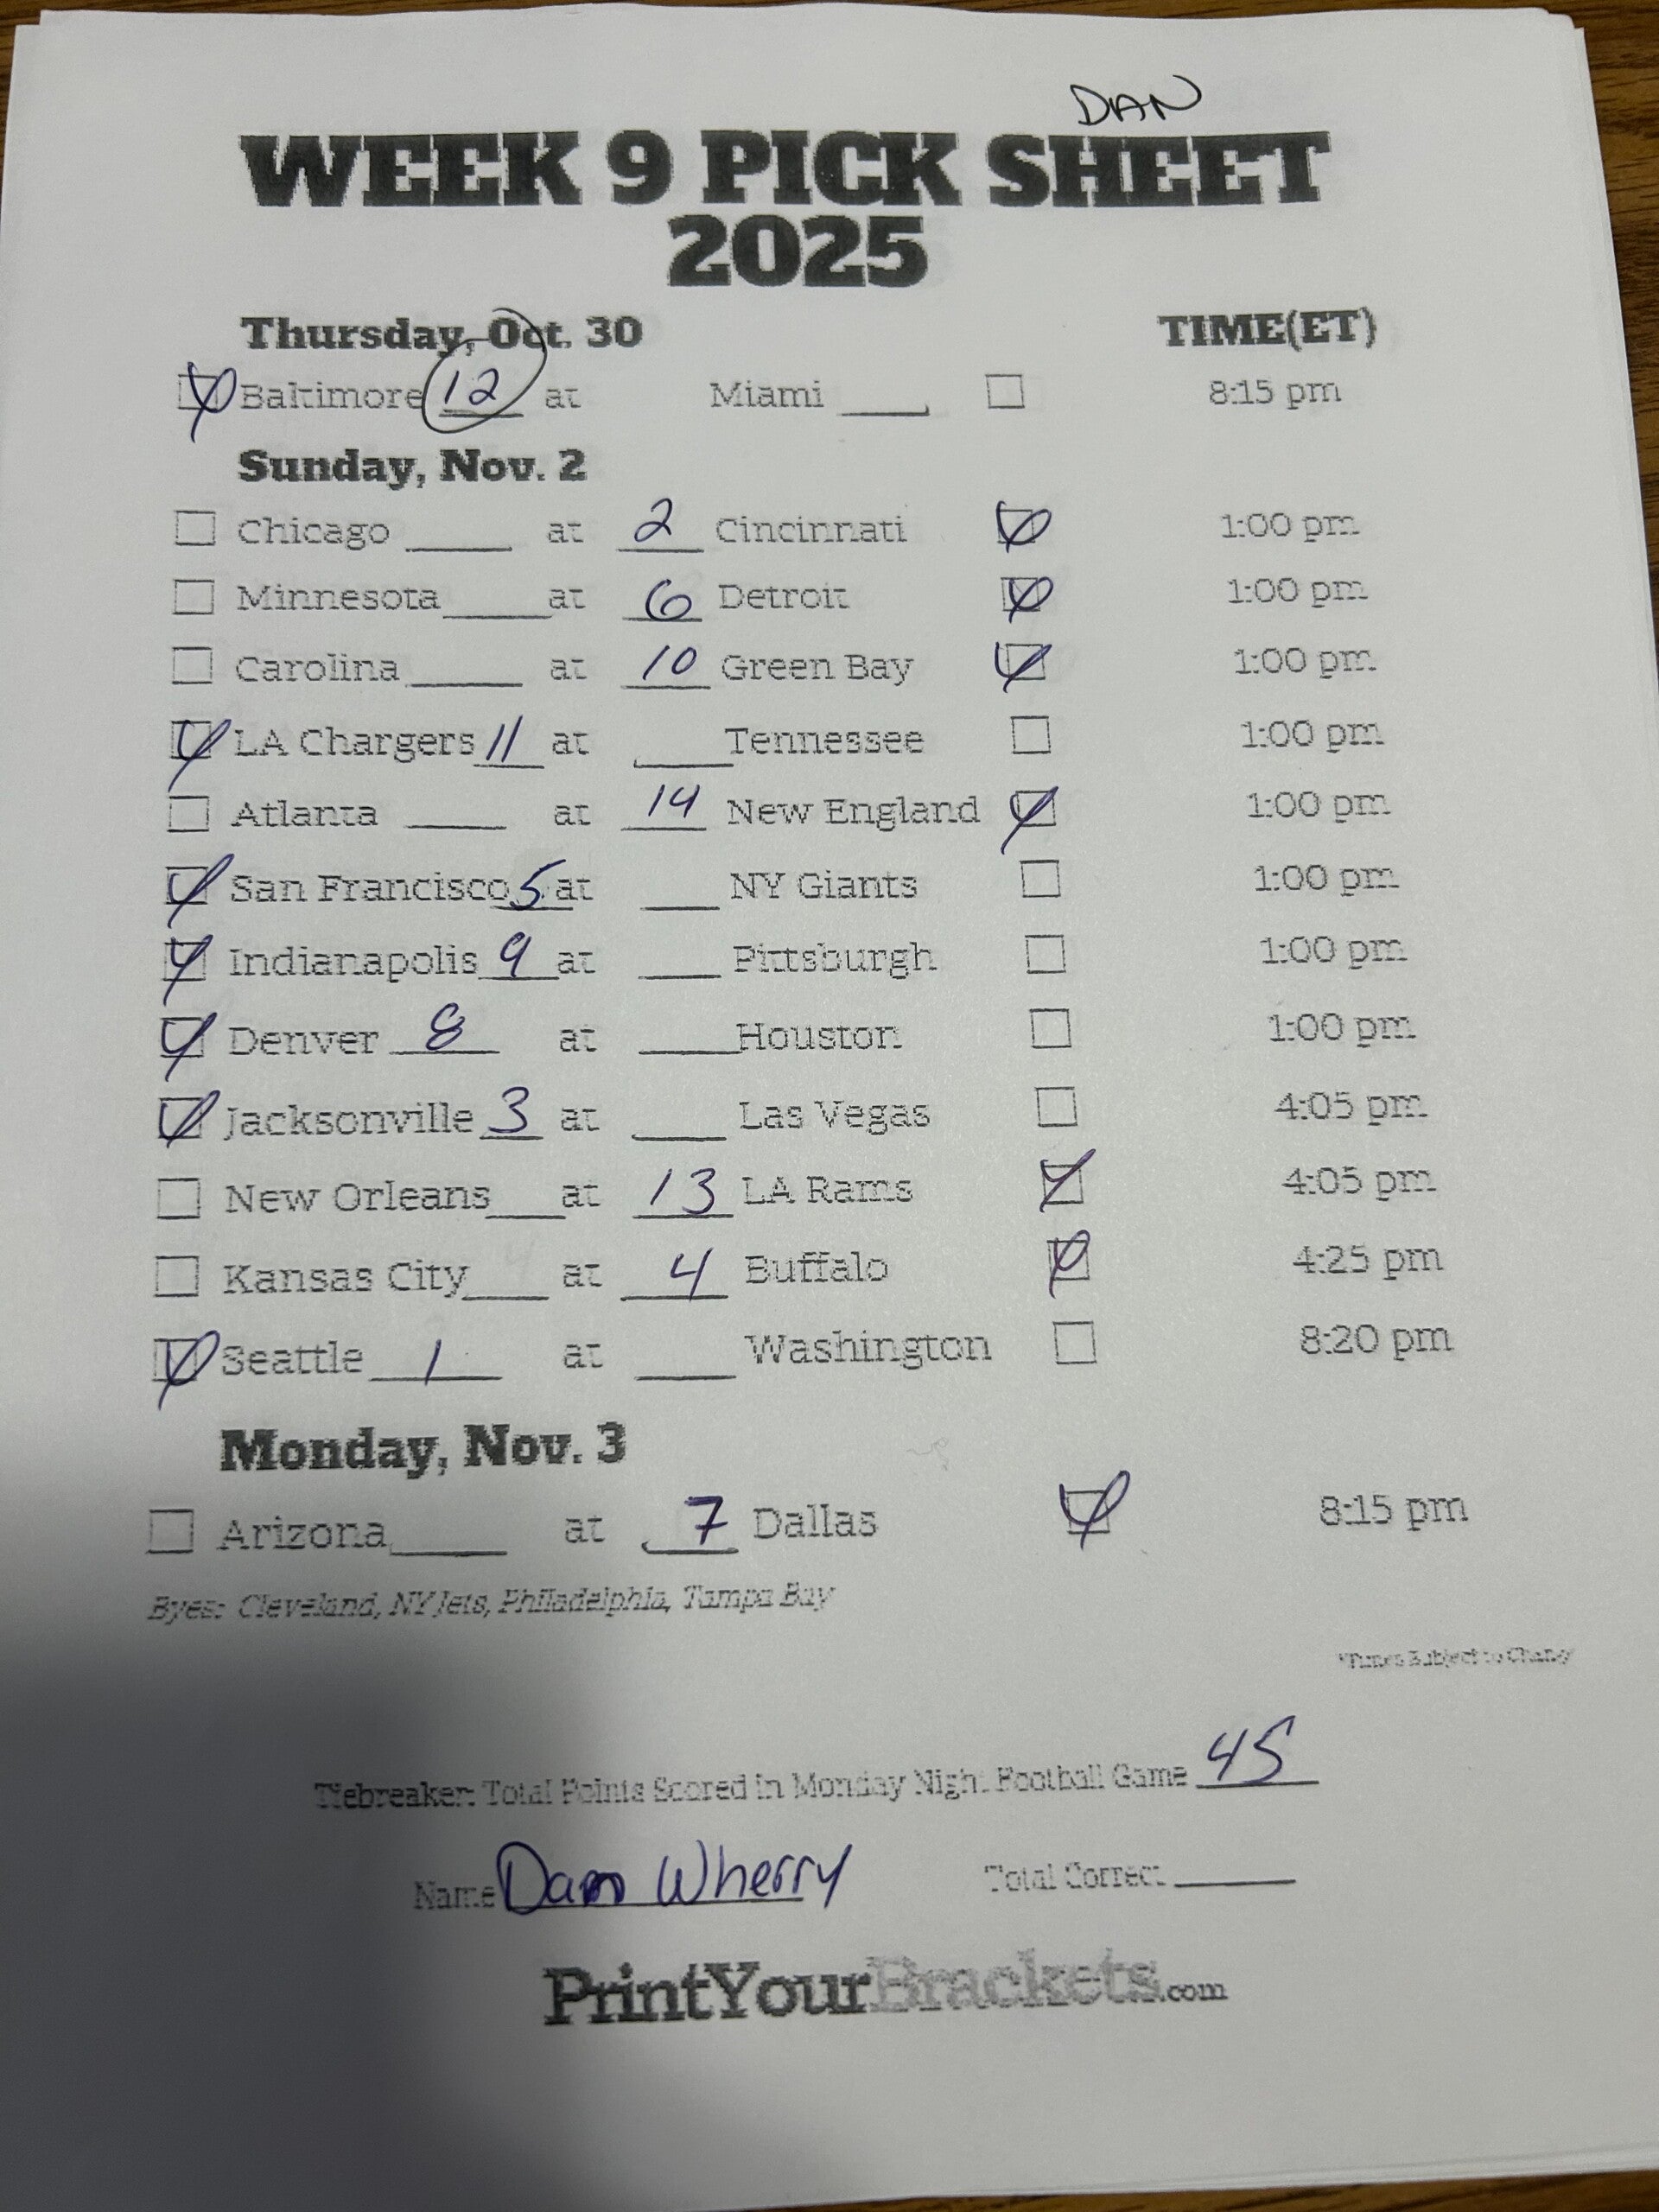 DAN
WEEK 9 PICK SHEET
2025
Thursday, Oct. 30 TIME(ET)
Baltimore 12 at Miami 8:15 pm
Sunday, Nov. 2
Chicago at 2 Cincinnati 1:00 pm
Minnesota at 6 Detroit 1:00 pm
Carolina at 10 Green Bay 1:00 pm
LA Chargers 11 at Tennessee 1:00 pm
Atlanta at 14 New England 1:00 pm
San Francisco 5 at NY Giants 1:00 pm
Indianapolis 9 at Pittsburgh 1:00 pm
Denver 8 at Houston 1:00 pm
Jacksonville 3 at Las Vegas 4:05 pm
New Orleans at 13 LA Rams 4:05 pm
Kansas City at 4 Buffalo 4:25 pm
Seattle 1 at Washington 8:20 pm
Monday, Nov. 3
Arizona at 7 Dallas 8:15 pm
Byes: Cleveland, NY Jets, Philadelphia, Tampa Bay
*Times Subject to Change
Tiebreaker: Total Points Scored in Monday Night Football Game 45
Name Dan Wherry Total Correct
PrintYourBrackets.com